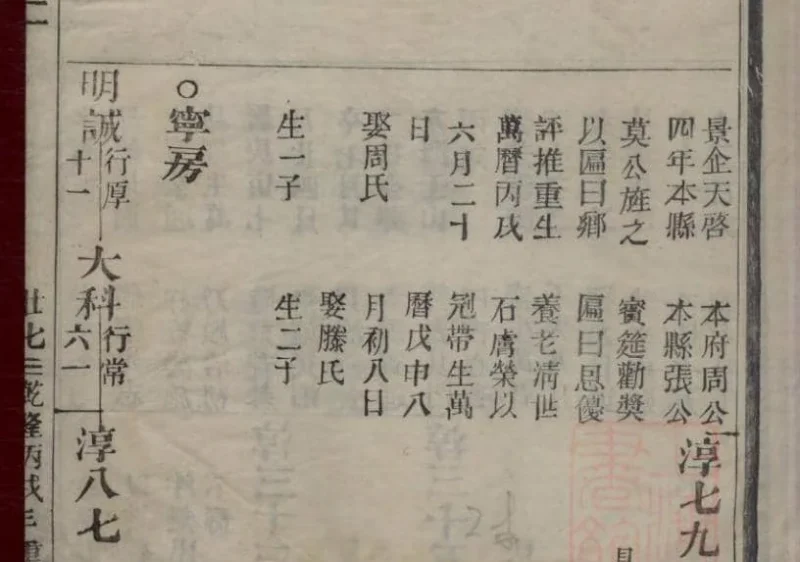 景企天啓
四年本縣
莫公旌之
以匾曰鄉
評推重生
萬曆丙戌
六月二十
日
娶周氏
生一子
○寧房
明誠行厚十一
本府周公
本縣張公
賓筵勸獎
匾曰恩優
養老淸世
石膚榮以
冠帶生萬
曆戊申八
月初八日
娶滕氏
生二子
大科行常六一
淳七九
淳八七
乾隆丙戌年重